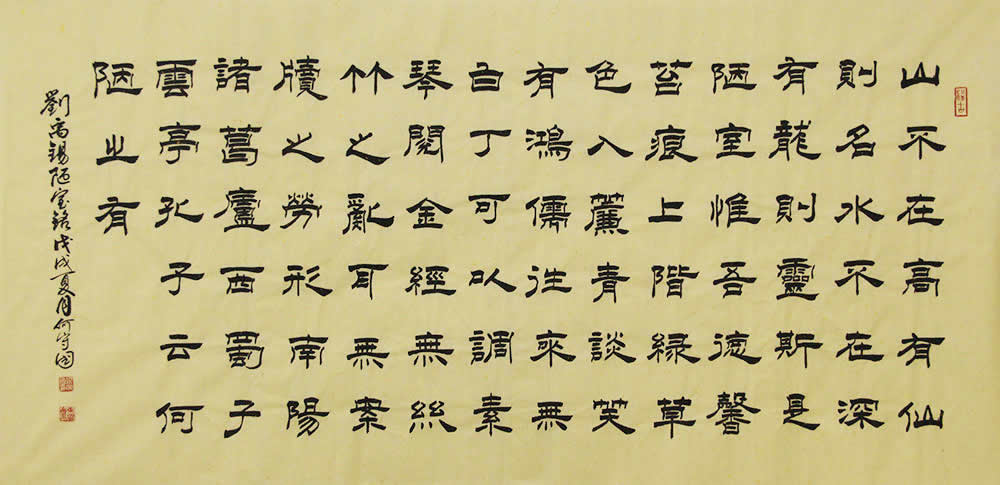 山不在高有仙
則名水不在深
有龍則靈斯是
陋室惟吾德馨
苔痕上階緑草
色入簾青談笑
有鴻儒往來無
白丁可以調素
琴閱金經無絲
竹之亂耳無案
牘之勞形南陽
諸葛廬西蜀子
雲亭孔子云何
陋之有
劉禹錫陋室銘戊戌夏月何守